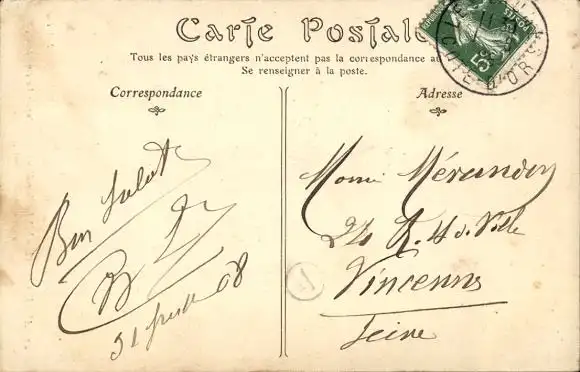 Carte Postale
Tous les pays étrangers n'acceptent pas la correspondance au
Se renseigner à la poste.
Correspondance
Adresse
Bon Salut
31 08
Mérandon
24 R. H. d. Ville
Vincennes
Seine
5c